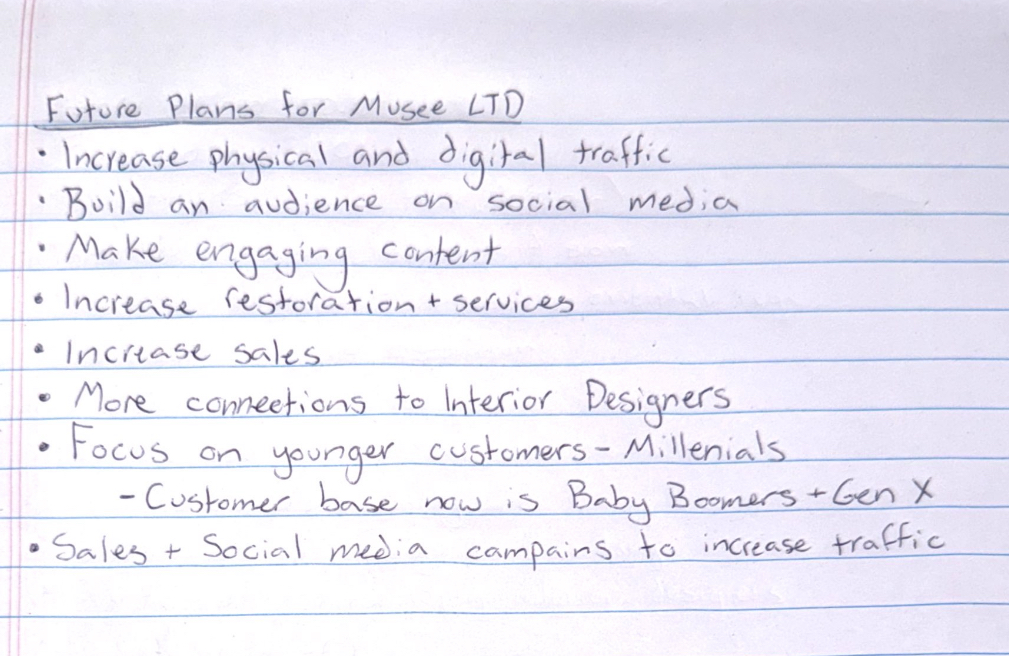 Future Plans for Musee LTD
• Increase physical and digital traffic
• Build an audience on social media
• Make engaging content
• Increase restoration + services
• Increase sales
• More connections to Interior Designers
• Focus on younger customers - Millenials
- Customer base now is Baby Boomers + Gen X
• Sales + Social media campains to increase traffic